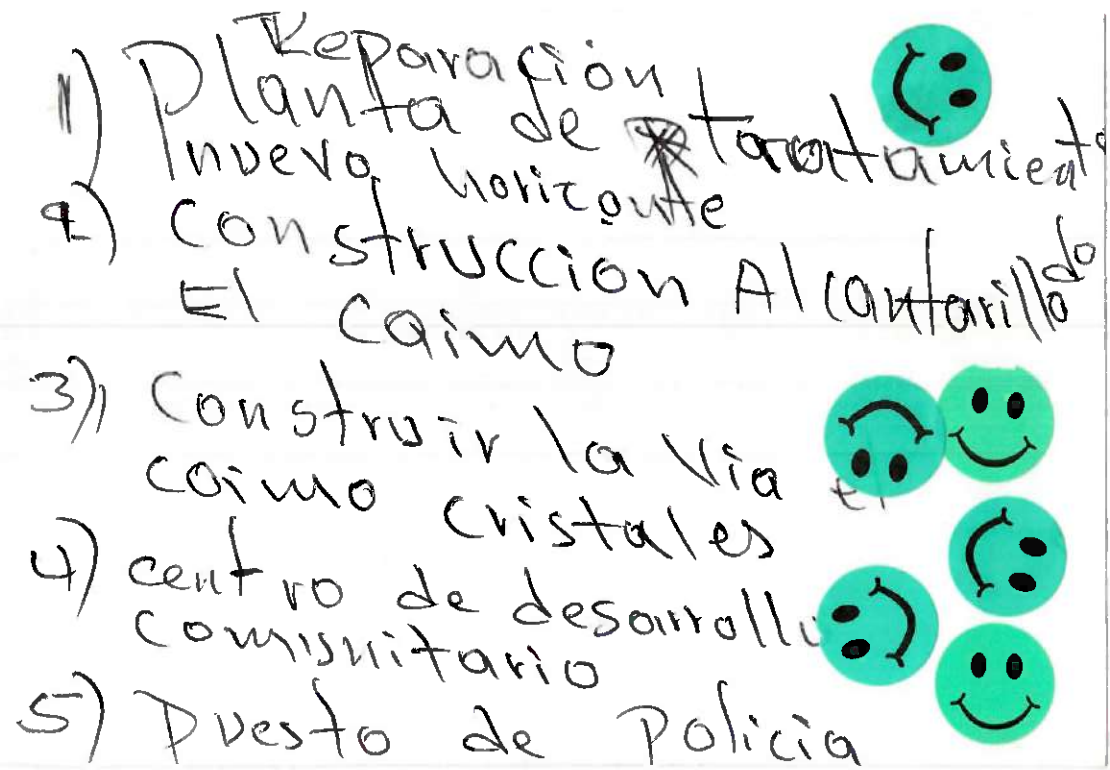 Reparación
1) Planta de taratamiento
nuevo horizonte
2) Construccion Alcantarillado
El Caimo
3) Construir la Via El
caimo cristales
4) centro de desarrollo
comunitario
5) Puesto de Policia